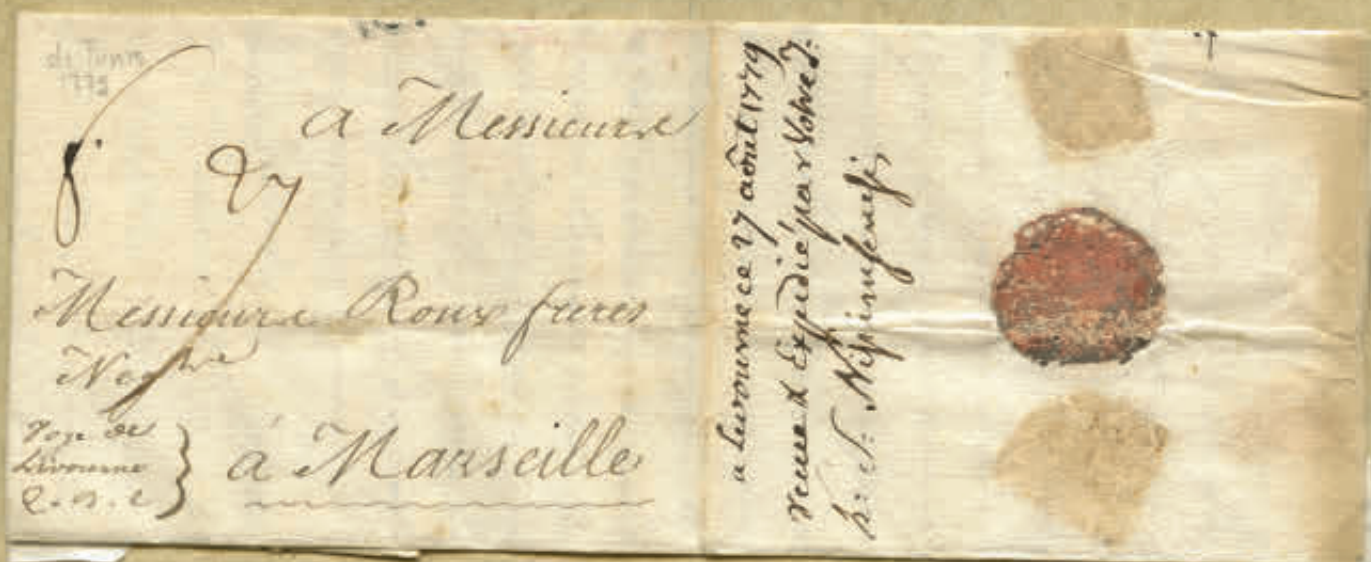 de Tunis
1779
a Messieurs
27
Messieurs Roux freres
Neg.
Voye de
Livourne
Q. D. C
à Marseille
a Livourne ce 27 août 1779
venue & Expediée par Votre S.